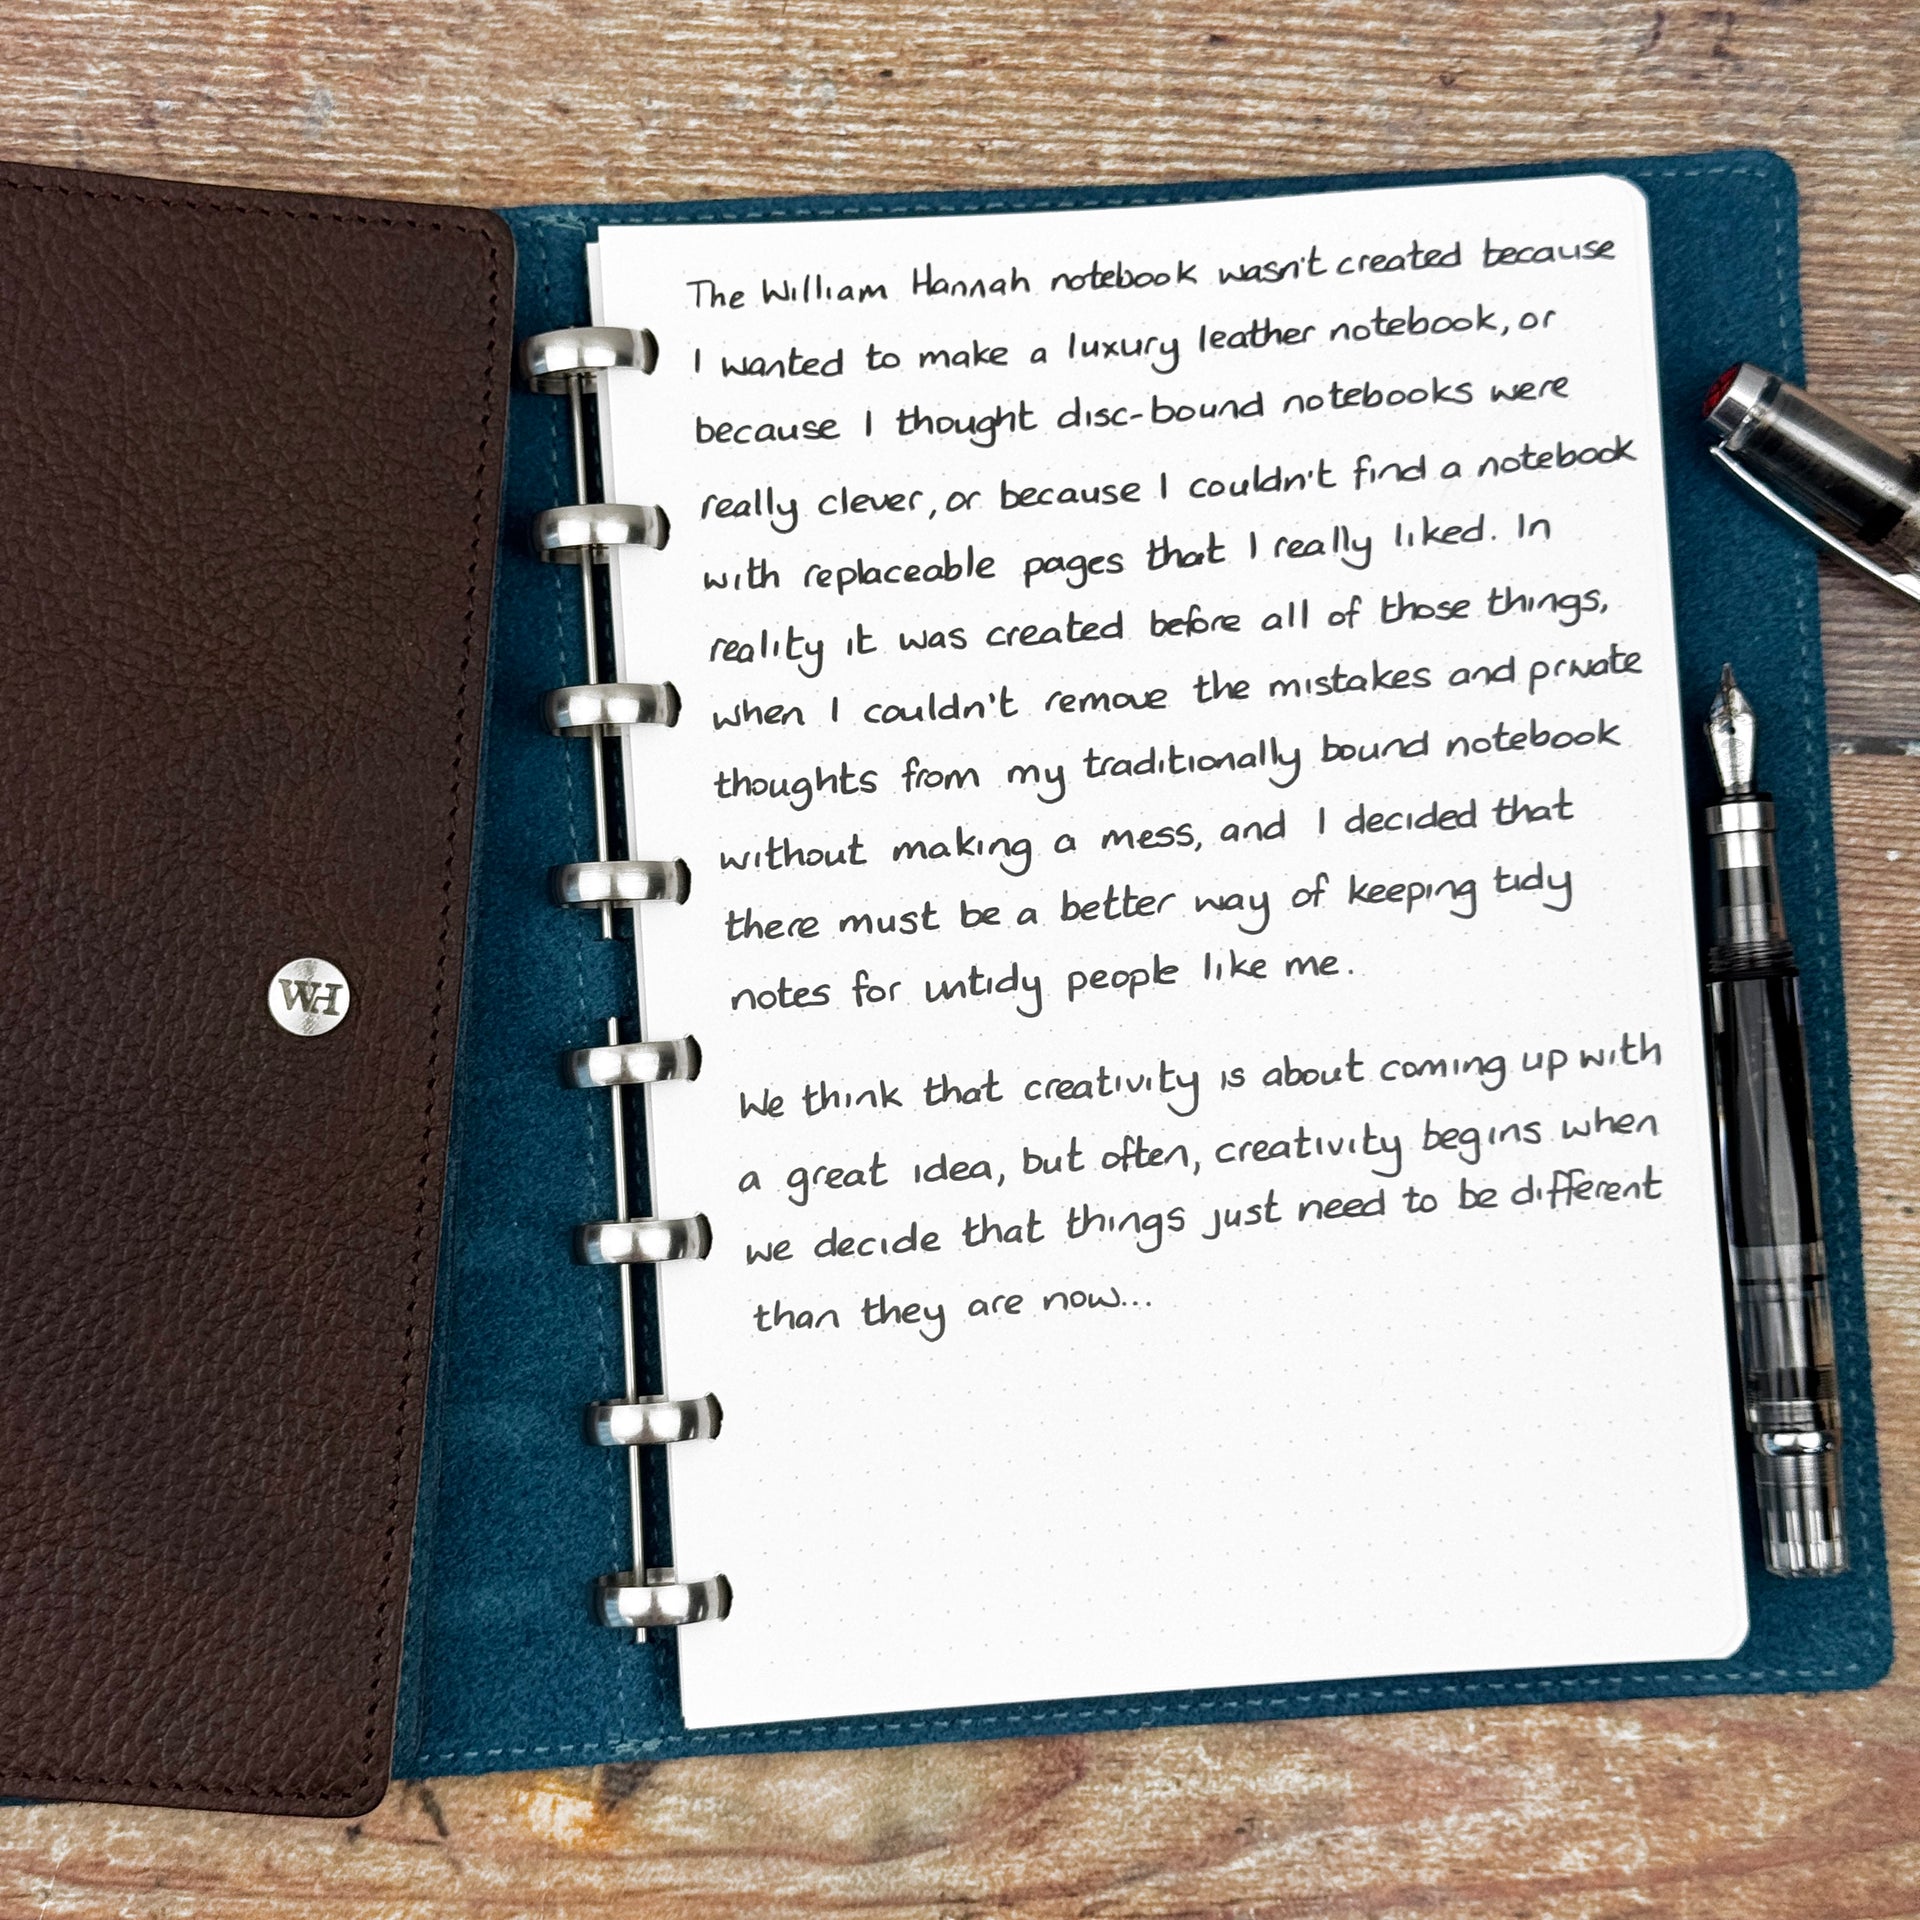 WH
The William Hannah notebook wasn't created because
I wanted to make a luxury leather notebook, or
because I thought disc-bound notebooks were
really clever, or because I couldn't find a notebook
with replaceable pages that I really liked. In
reality it was created before all of those things,
when I couldn't remove the mistakes and private
thoughts from my traditionally bound notebook
without making a mess, and I decided that
there must be a better way of keeping tidy
notes for untidy people like me.
We think that creativity is about coming up with
a great idea, but often, creativity begins when
we decide that things just need to be different
than they are now...